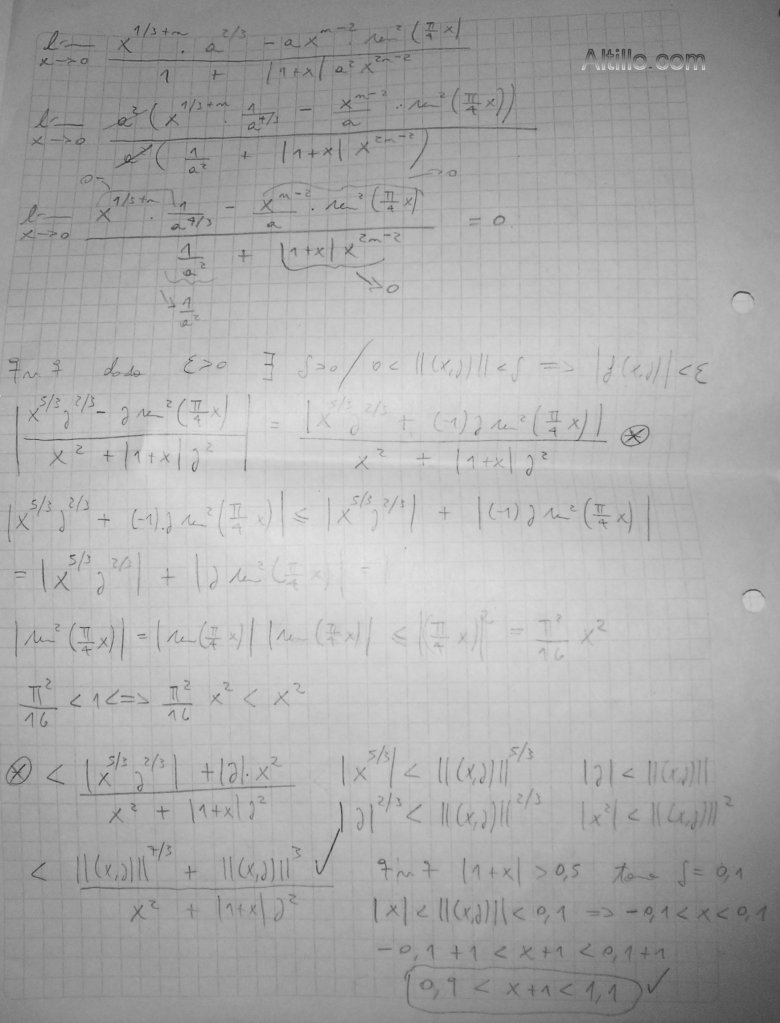 lim x→0 (x^{1/3+m} · a^{2/3} - a x^{m-2} · sen²(π/4 x)) / (1 + |1+x| a² x^{2m-2})
Altillo.com
lim x→0 a²(x^{1/3+m} · 1/a^{4/3} - x^{m-2}/a · sen²(π/4 x)) / a²(1/a² + |1+x| x^{2m-2})
0 →0
lim x→0 (x^{1/3+m} · 1/a^{4/3} - x^{m-2}/a · sen²(π/4 x)) / (1/a² + |1+x| x^{2m-2}) = 0
→ 1/a² → 0
qnq dado ε>0 ∃ δ>0 / 0<||(x,y)||<δ => |f(x,y)|<ε
|(x^{5/3} y^{2/3} - y sen²(π/4 x)) / (x² + |1+x| y²)| = |x^{5/3} y^{2/3} + (-1) y sen²(π/4 x)| / (x² + |1+x| y²) ⊛
|x^{5/3} y^{2/3} + (-1).y sen²(π/4 x)| ≤ |x^{5/3} y^{2/3}| + |(-1) y sen²(π/4 x)|
= |x^{5/3} y^{2/3}| + |y sen²(π/4 x)| =
|sen²(π/4 x)| = |sen(π/4 x)| |sen(π/4 x)| ≤ |(π/4 x)|² = π²/16 x²
π²/16 < 1 <=> π²/16 x² < x²
⊛ < (|x^{5/3} y^{2/3}| + |y|· x²) / (x² + |1+x| y²)
|x^{5/3}| < ||(x,y)||^{5/3} |y| < ||(x,y)||
|y|^{2/3} < ||(x,y)||^{2/3} |x²| < ||(x,y)||²
< (||(x,y)||^{7/3} + ||(x,y)||³) / (x² + |1+x| y²) ✓
qnq |1+x| > 0,5 tomo δ = 0,1
|x| < ||(x,y)|| < 0,1 => -0,1 < x < 0,1
-0,1+1 < x+1 < 0,1+1
0,9 < x+1 < 1,1 ✓